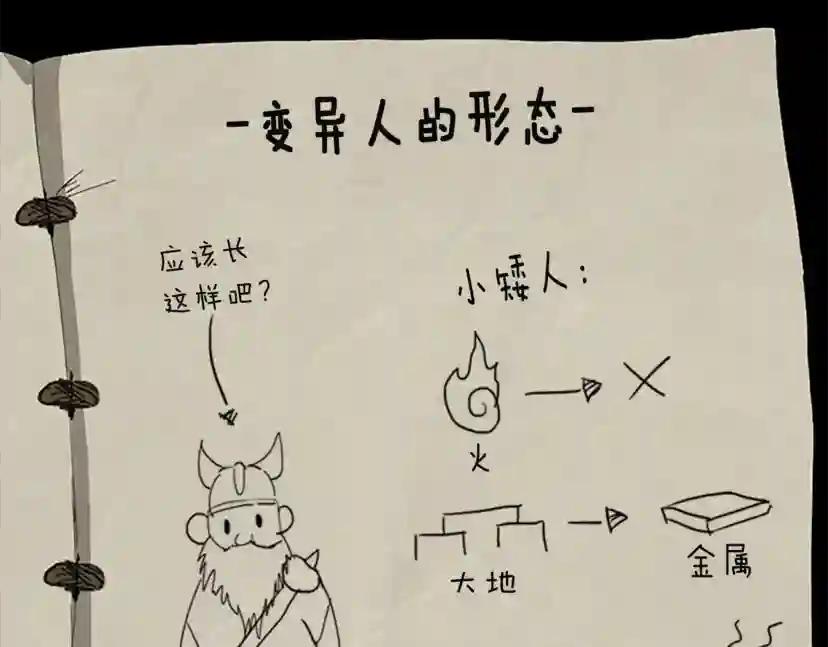 -变异人的形态-
应该长
这样吧?
小矮人:
火
大地
金属